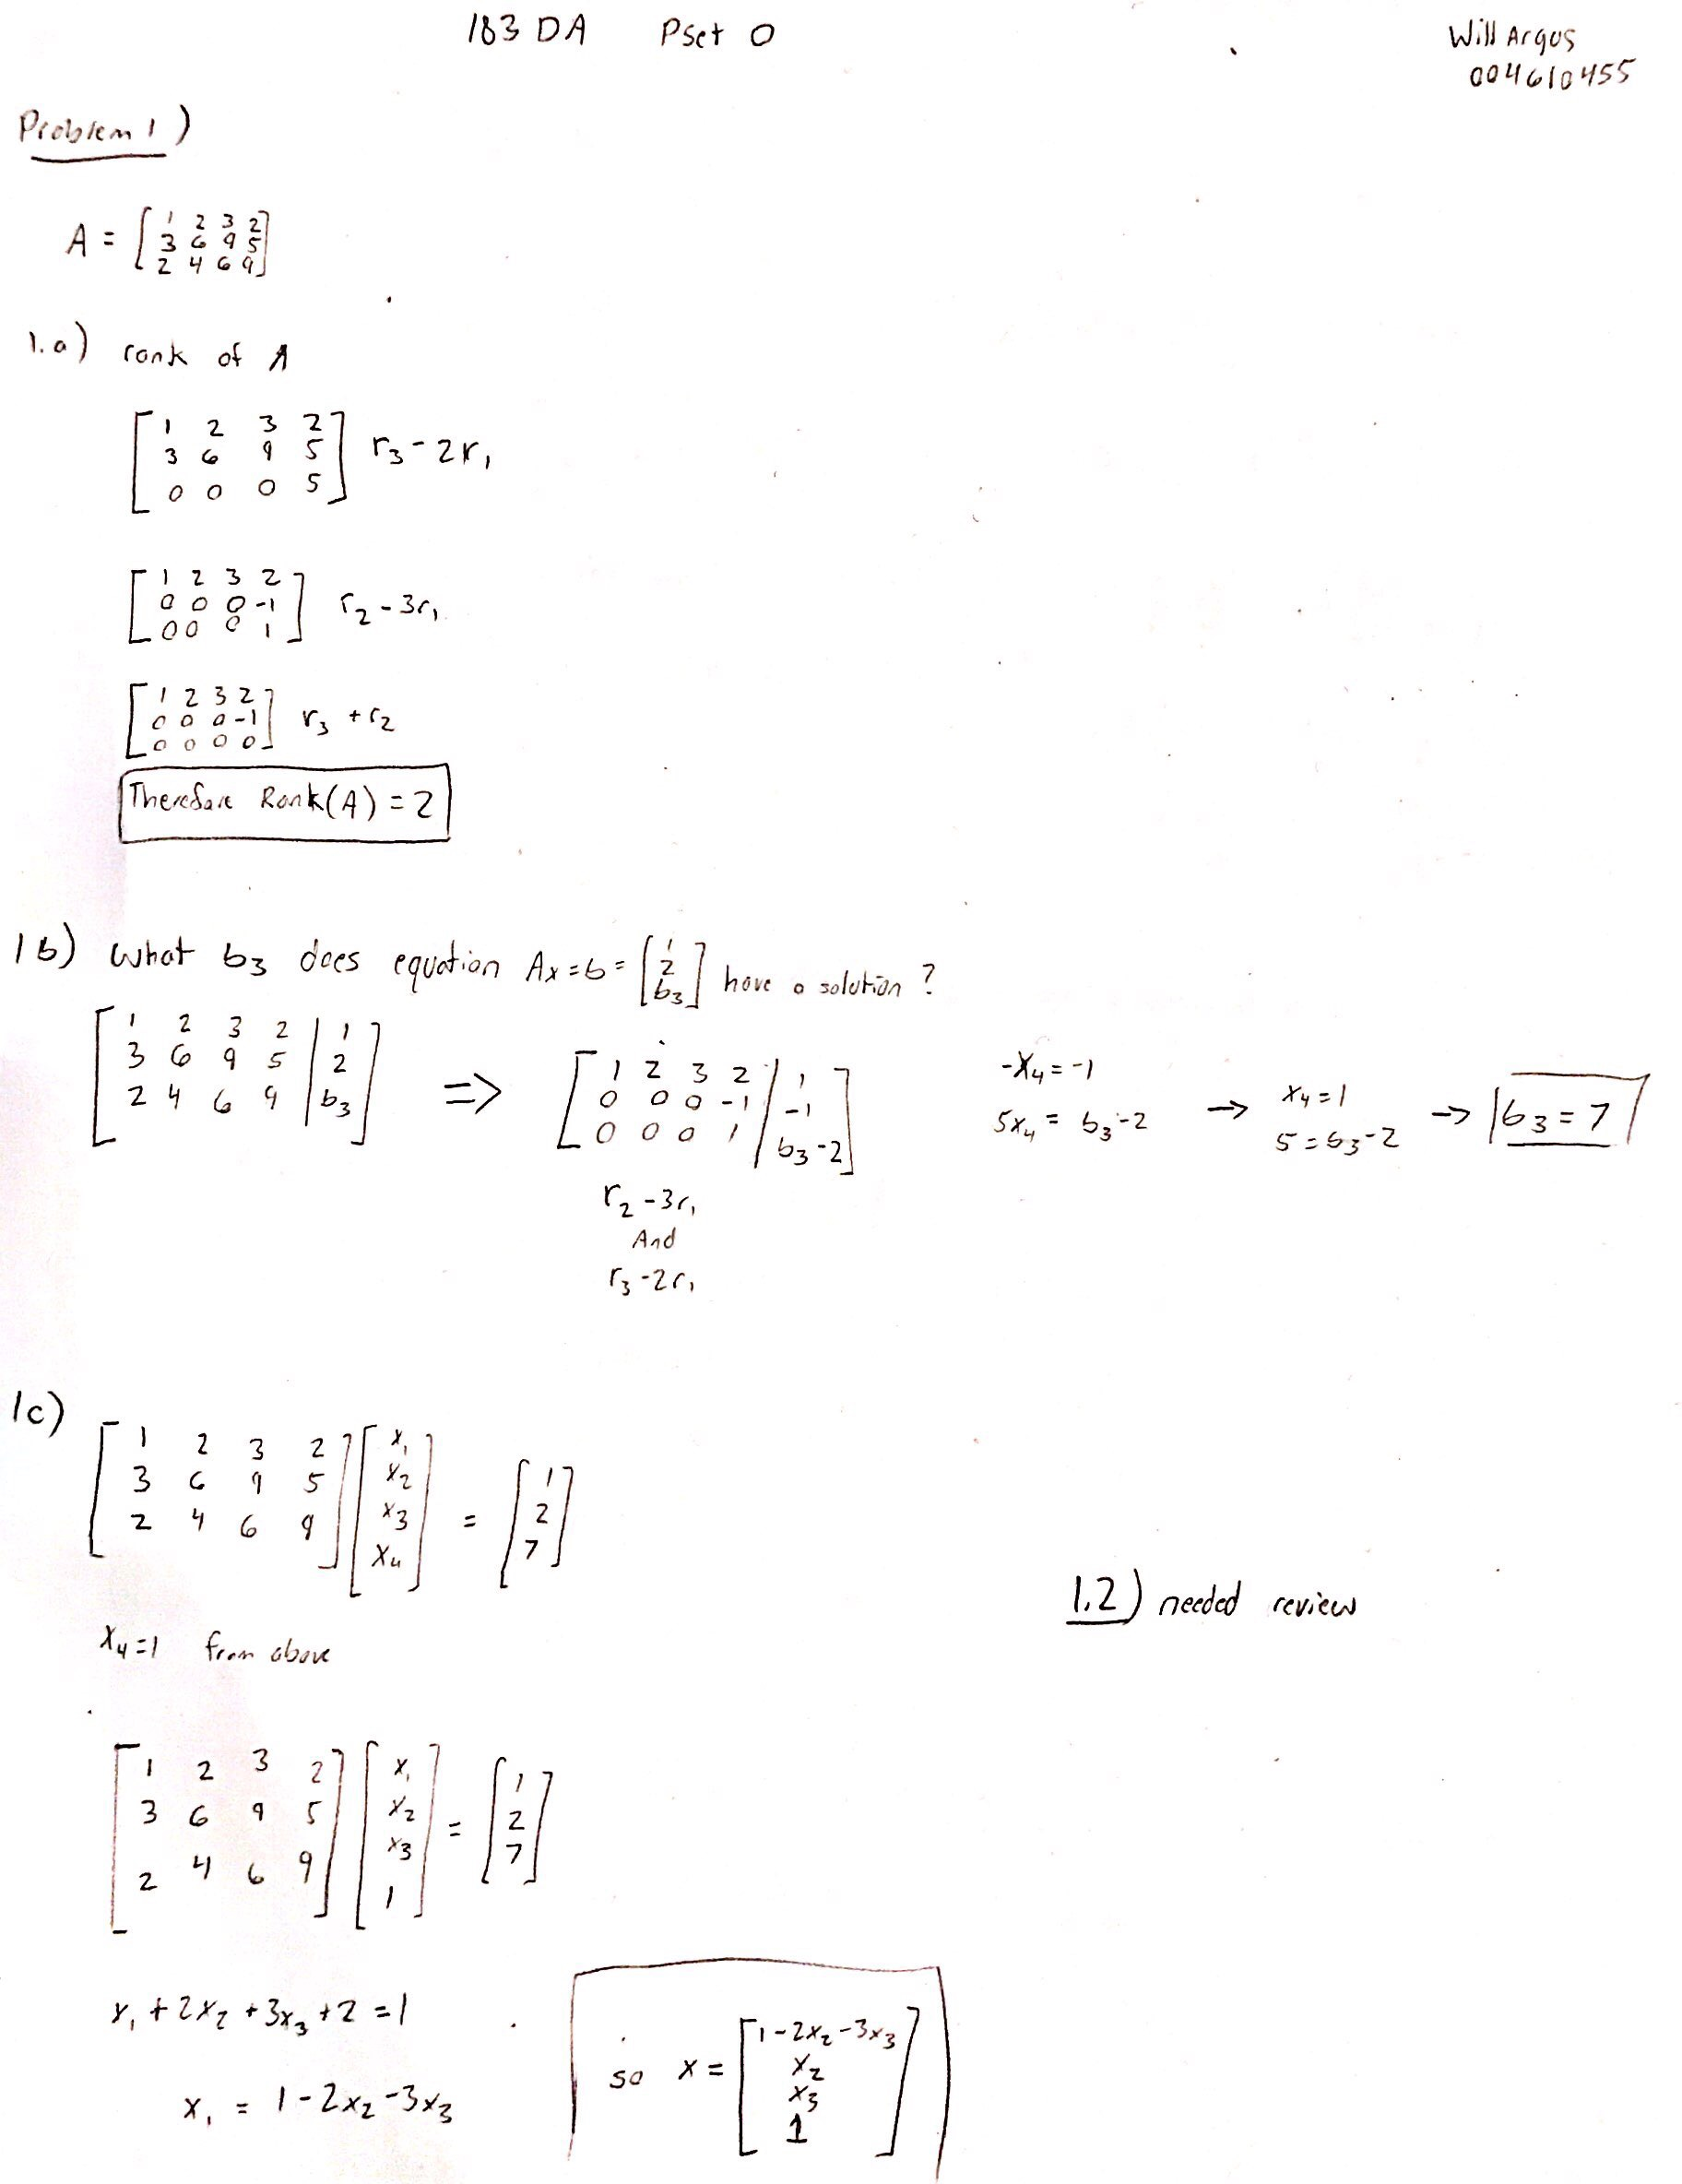 183 DA Pset 0
Will Argus
004610455
Problem 1)
A = [1 2 3 2
3 6 9 5
2 4 6 9]
1.a) rank of A
[1 2 3 2
3 6 9 5
0 0 0 5] r3 - 2r1
[1 2 3 2
0 0 0 -1
0 0 0 1] r2 - 3r1
[1 2 3 2
0 0 0 -1
0 0 0 0] r3 + r2
Therefore Rank(A) = 2
1b) what b3 does equation Ax = b = [1 2 b3] have a solution?
[1 2 3 2 | 1
3 6 9 5 | 2
2 4 6 9 | b3]
=>
[1 2 3 2 | 1
0 0 0 -1 | -1
0 0 0 1 | b3-2]
r2 - 3r1
And
r3 - 2r1
-x4 = -1
5x4 = b3 - 2
→ x4 = 1
5 = b3 - 2
→ b3 = 7
1c)
[1 2 3 2
3 6 9 5
2 4 6 9]
[x1
x2
x3
x4]
=
[1
2
7]
1.2) needed review
x4 = 1 from above
[1 2 3 2
3 6 9 5
2 4 6 9]
[x1
x2
x3
1]
=
[1
2
7]
x1 + 2x2 + 3x3 + 2 = 1
x1 = 1 - 2x2 - 3x3
so x = [1 - 2x2 - 3x3
x2
x3
1]